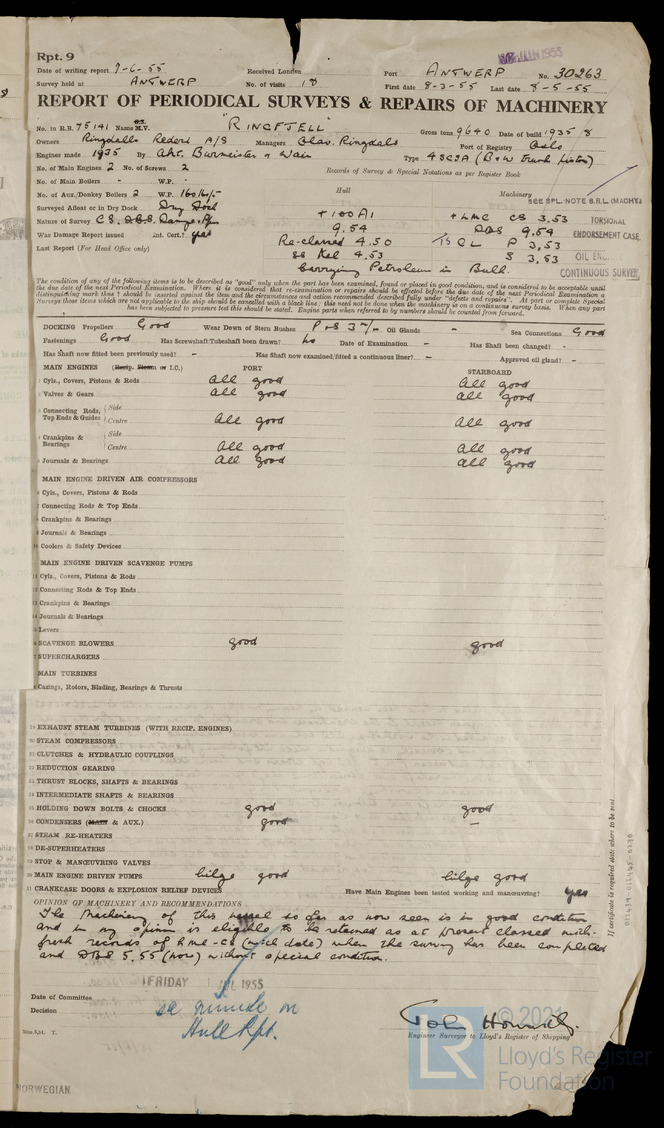 Rpt. 9
JUN 1955
Date of writing report 9-6-55 Received London Port ANTWERP No. 30263
Survey held at ANTWERP No. of visits 18 First date 8-3-55 Last date 8-5-55
REPORT OF PERIODICAL SURVEYS & REPAIRS OF MACHINERY
No. in R.B. 75141 Name M.V. "RINGFJELL" Gross tons 9640 Date of build 1935 8
Owners Ringdals Rederi A/S Managers Olav. Ringdals Port of Registry Oslo
Engines made 1935 By Akt. Burmeister & Wain Type 4SCSA (B&W trunk piston)
No. of Main Engines 2 No. of Screws 2 Records of Survey & Special Notations as per Register Book
No. of Main Boilers - W.P.
No. of Aux./Donkey Boilers 2 W.P. Hull Machinery
SEE SPL. NOTE S.R.L. (MACHY)
Surveyed Afloat or in Dry Dock Dry Dock
Nature of Survey C.S. D.B.S. Damage. +100A1 +LMC CS 3.53 TORSIONAL
Was Damage Report issued Int. Cert.? yes 9.54 DBS 9.54 ENDORSEMENT CASE
Last Report (For Head Office only) Re-classed 4.50 TS CL P 3.53
4.53 S 3.53 OIL ENG.
Carrying Petroleum in Bulk. CONTINUOUS SURVEY
The condition of any of the following items is to be described as "good" only when the part has been examined, found or placed in good condition, and is considered to be acceptable until
the due date of the next Periodical Examination. Where it is considered that re-examination or repairs should be effected before the due date of the next Periodical Examination a
distinguishing mark thus † should be inserted against the item and the circumstances and action recommended described fully under "defects and repairs". At part or complete Special
Surveys those items which are not applicable to the ship should be cancelled with a black line; this need not be done when the machinery is on a continuous survey basis. When any part
has been subjected to pressure test this should be stated. Engine parts when referred to by numbers should be counted from forward.
DOCKING Propellers Good Wear Down of Stern Bushes P & S 3 Oil Glands - Sea Connections Good
Fastenings Good Has Screwshaft/Tubeshaft been drawn? no Date of Examination - Has Shaft been changed? -
Has Shaft now fitted been previously used? - Has Shaft now examined/fitted a continuous liner? - Approved oil gland? -
MAIN ENGINES (Recip. Steam or I.C.) PORT STARBOARD
1 Cyls., Covers, Pistons & Rods All good All good
2 Valves & Gears All good All good
3 Connecting Rods, Top Ends & Guides Side
Centre All good All good
4 Crankpins & Bearings Side
Centre All good All good
5 Journals & Bearings All good All good
MAIN ENGINE DRIVEN AIR COMPRESSORS
6 Cyls., Covers, Pistons & Rods
7 Connecting Rods & Top Ends
8 Crankpins & Bearings
9 Journals & Bearings
10 Coolers & Safety Devices
MAIN ENGINE DRIVEN SCAVENGE PUMPS
11 Cyls., Covers, Pistons & Rods
12 Connecting Rods & Top Ends
13 Crankpins & Bearings
14 Journals & Bearings
15 Levers
16 SCAVENGE BLOWERS good good
17 SUPERCHARGERS
MAIN TURBINES
18 Casings, Rotors, Blading, Bearings & Thrusts
19 EXHAUST STEAM TURBINES (WITH RECIP. ENGINES)
20 STEAM COMPRESSORS
21 CLUTCHES & HYDRAULIC COUPLINGS
22 REDUCTION GEARING
23 THRUST BLOCKS, SHAFTS & BEARINGS
24 INTERMEDIATE SHAFTS & BEARINGS
25 HOLDING DOWN BOLTS & CHOCKS good good
26 CONDENSERS (MAIN & AUX.) good -
27 STEAM RE-HEATERS
28 DE-SUPERHEATERS
29 STOP & MANŒUVRING VALVES
30 MAIN ENGINE DRIVEN PUMPS bilge good bilge good
31 CRANKCASE DOORS & EXPLOSION RELIEF DEVICES Have Main Engines been tested working and manœuvring? yes
OPINION OF MACHINERY AND RECOMMENDATIONS
The machinery of this vessel so far as now seen is in good condition
and in my opinion is eligible to be retained as at present classed with
fresh records of LMC-CS (with date) when the survey has been completed
and DBS 5.55 (now) without special condition.
FRIDAY 1 JUL 1955
Date of Committee
Decision see minute on
Hull Rpt.
Engineer Surveyor to Lloyd's Register of Shipping
NORWEGIAN
If certificate is required state where to be sent
© 2021
LR
Lloyd's Register
Foundation